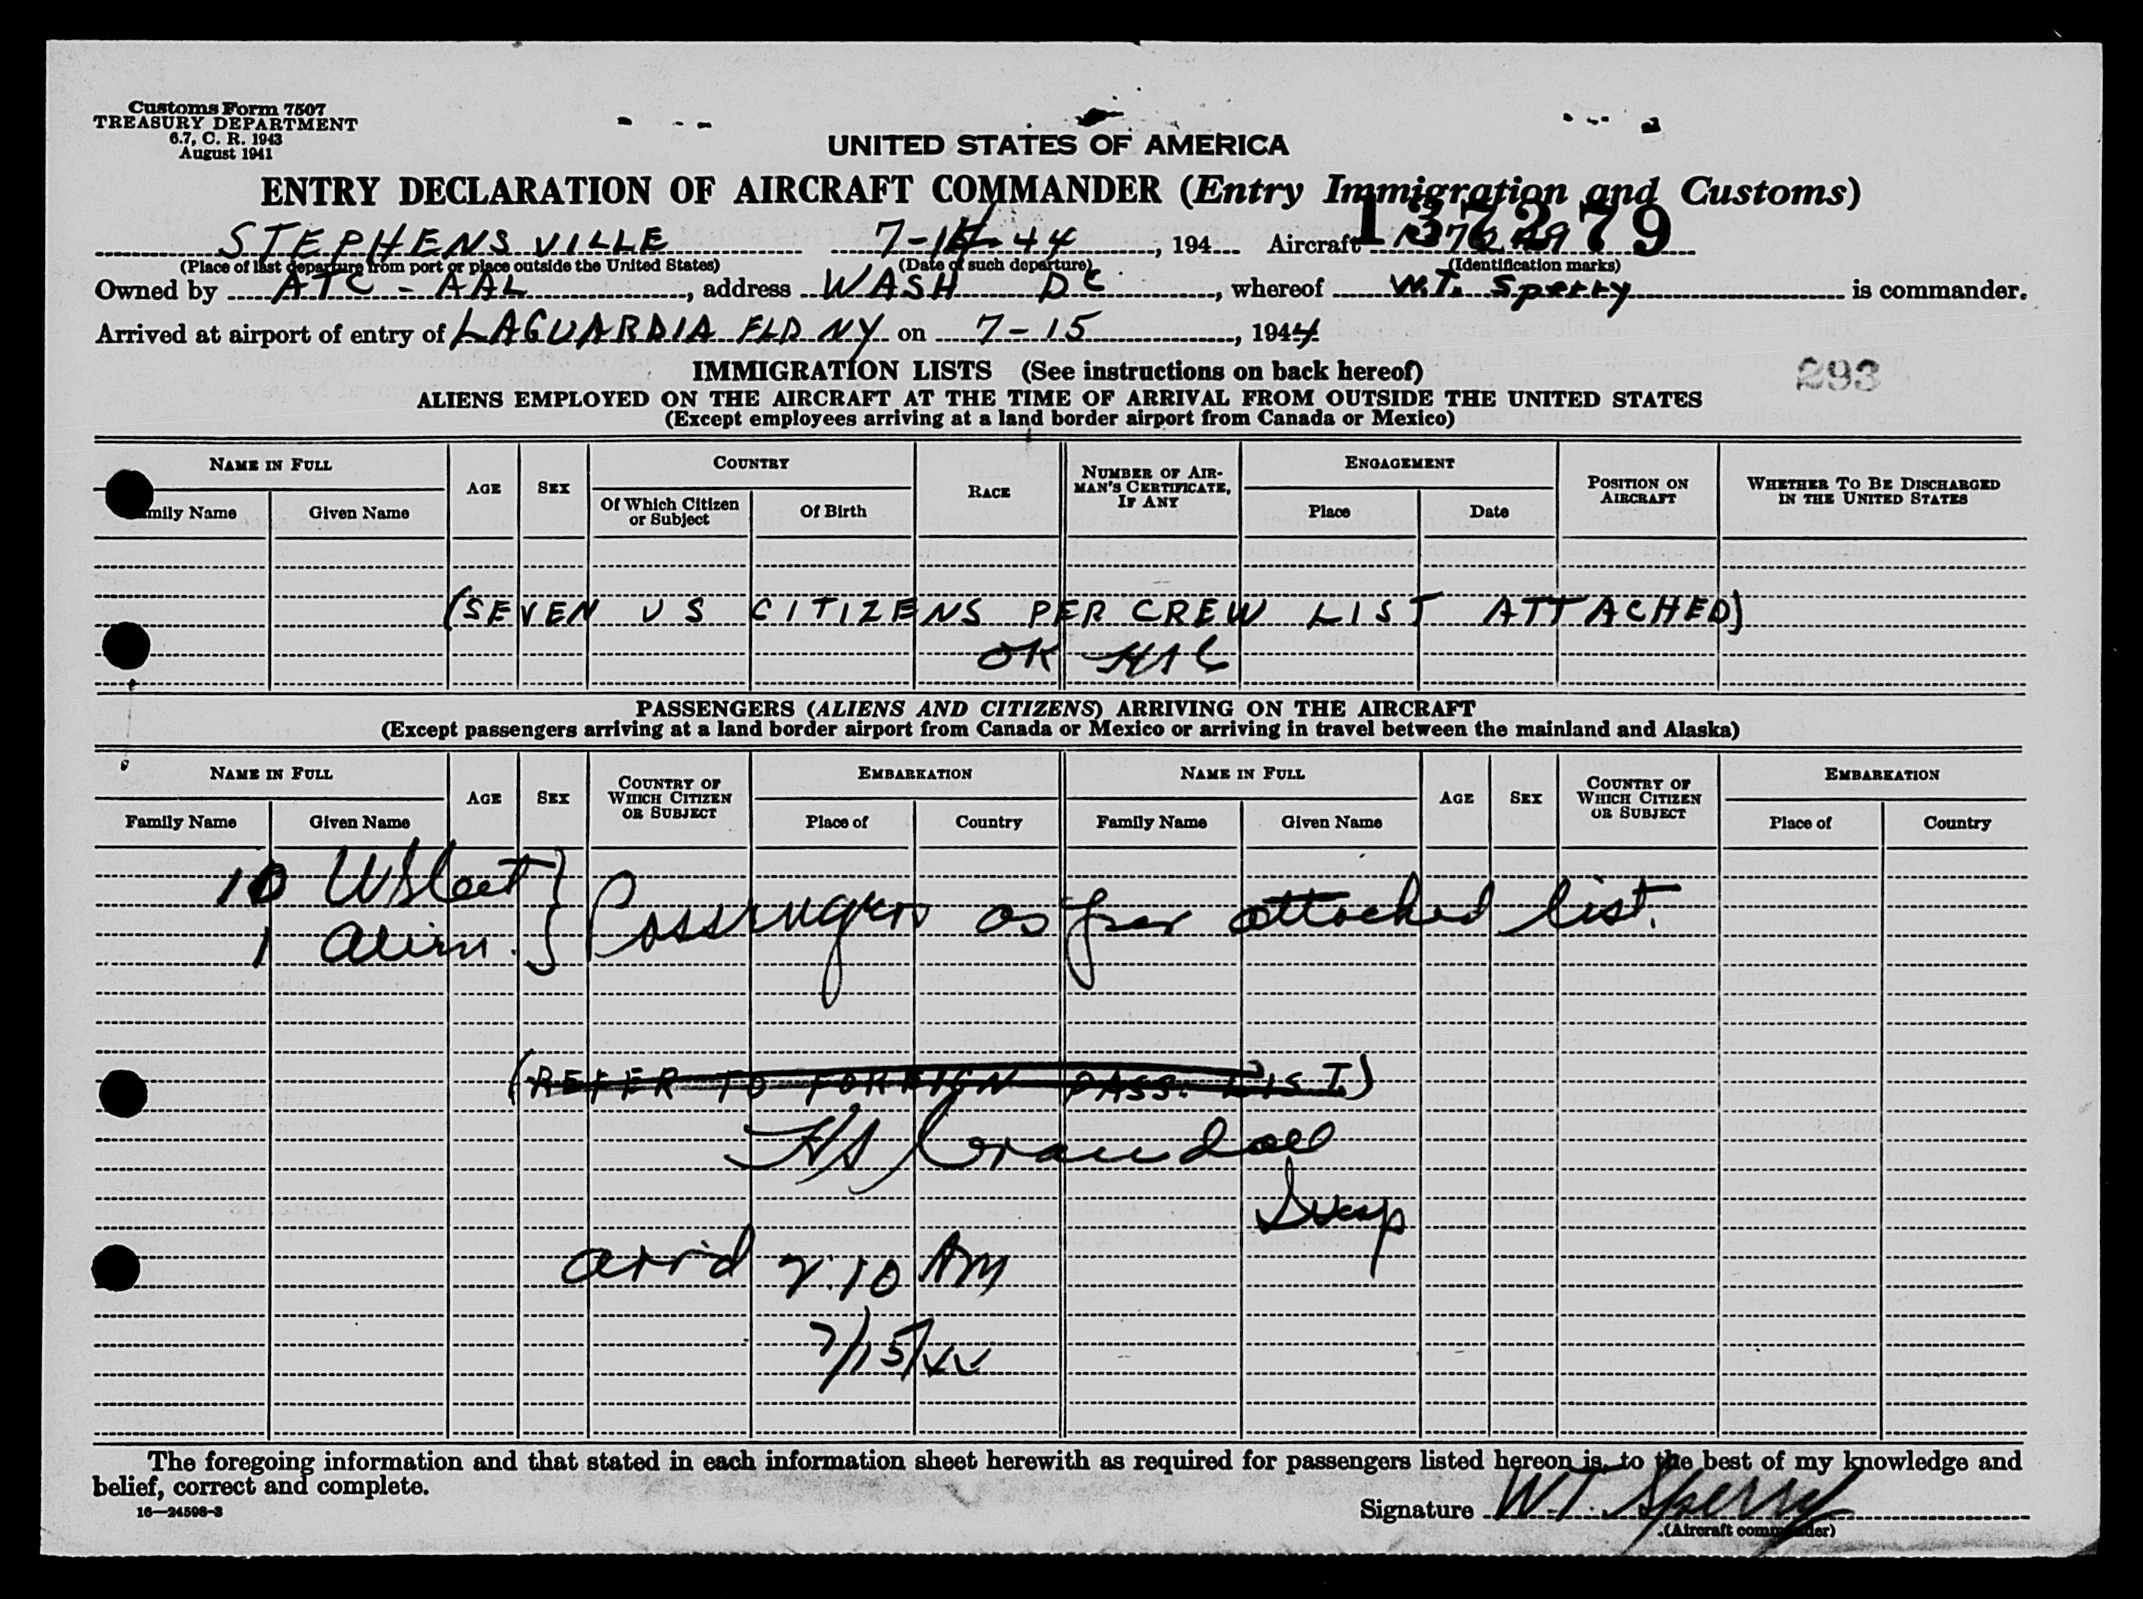 Customs Form 7507
TREASURY DEPARTMENT
6.7, C. R. 1943
August 1941
UNITED STATES OF AMERICA
ENTRY DECLARATION OF AIRCRAFT COMMANDER (Entry Immigration and Customs)
137279
STEPHENSVILLE 7-14-44, 194 Aircraft
(Place of last departure from port or place outside the United States) (Date of such departure) (Identification marks)
Owned by ATC - AAL, address WASH DC, whereof W.T. Sperry is commander.
Arrived at airport of entry of LAGUARDIA FLD NY on 7-15, 1944
IMMIGRATION LISTS (See instructions on back hereof)
293
ALIENS EMPLOYED ON THE AIRCRAFT AT THE TIME OF ARRIVAL FROM OUTSIDE THE UNITED STATES
(Except employees arriving at a land border airport from Canada or Mexico)
NAME IN FULL AGE SEX COUNTRY RACE NUMBER OF AIRMAN'S CERTIFICATE, IF ANY ENGAGEMENT POSITION ON AIRCRAFT WHETHER TO BE DISCHARGED IN THE UNITED STATES
Family Name Given Name Of Which Citizen or Subject Of Birth Place Date
(SEVEN US CITIZENS PER CREW LIST ATTACHED)
OK HSC
PASSENGERS (ALIENS AND CITIZENS) ARRIVING ON THE AIRCRAFT
(Except passengers arriving at a land border airport from Canada or Mexico or arriving in travel between the mainland and Alaska)
NAME IN FULL AGE SEX COUNTRY OF WHICH CITIZEN OR SUBJECT EMBARKATION NAME IN FULL AGE SEX COUNTRY OF WHICH CITIZEN OR SUBJECT EMBARKATION
Family Name Given Name Place of Country Family Name Given Name Place of Country
10 US Cit } Passengers as per attached list.
1 Alien }
(REFER TO FOREIGN PASS. LIST)
HS Crandall
Insp
arr'd 2:10 AM
7/15/44
The foregoing information and that stated in each information sheet herewith as required for passengers listed hereon is, to the best of my knowledge and
belief, correct and complete.
16—24598-3
Signature W.T. Sperry
(Aircraft commander)